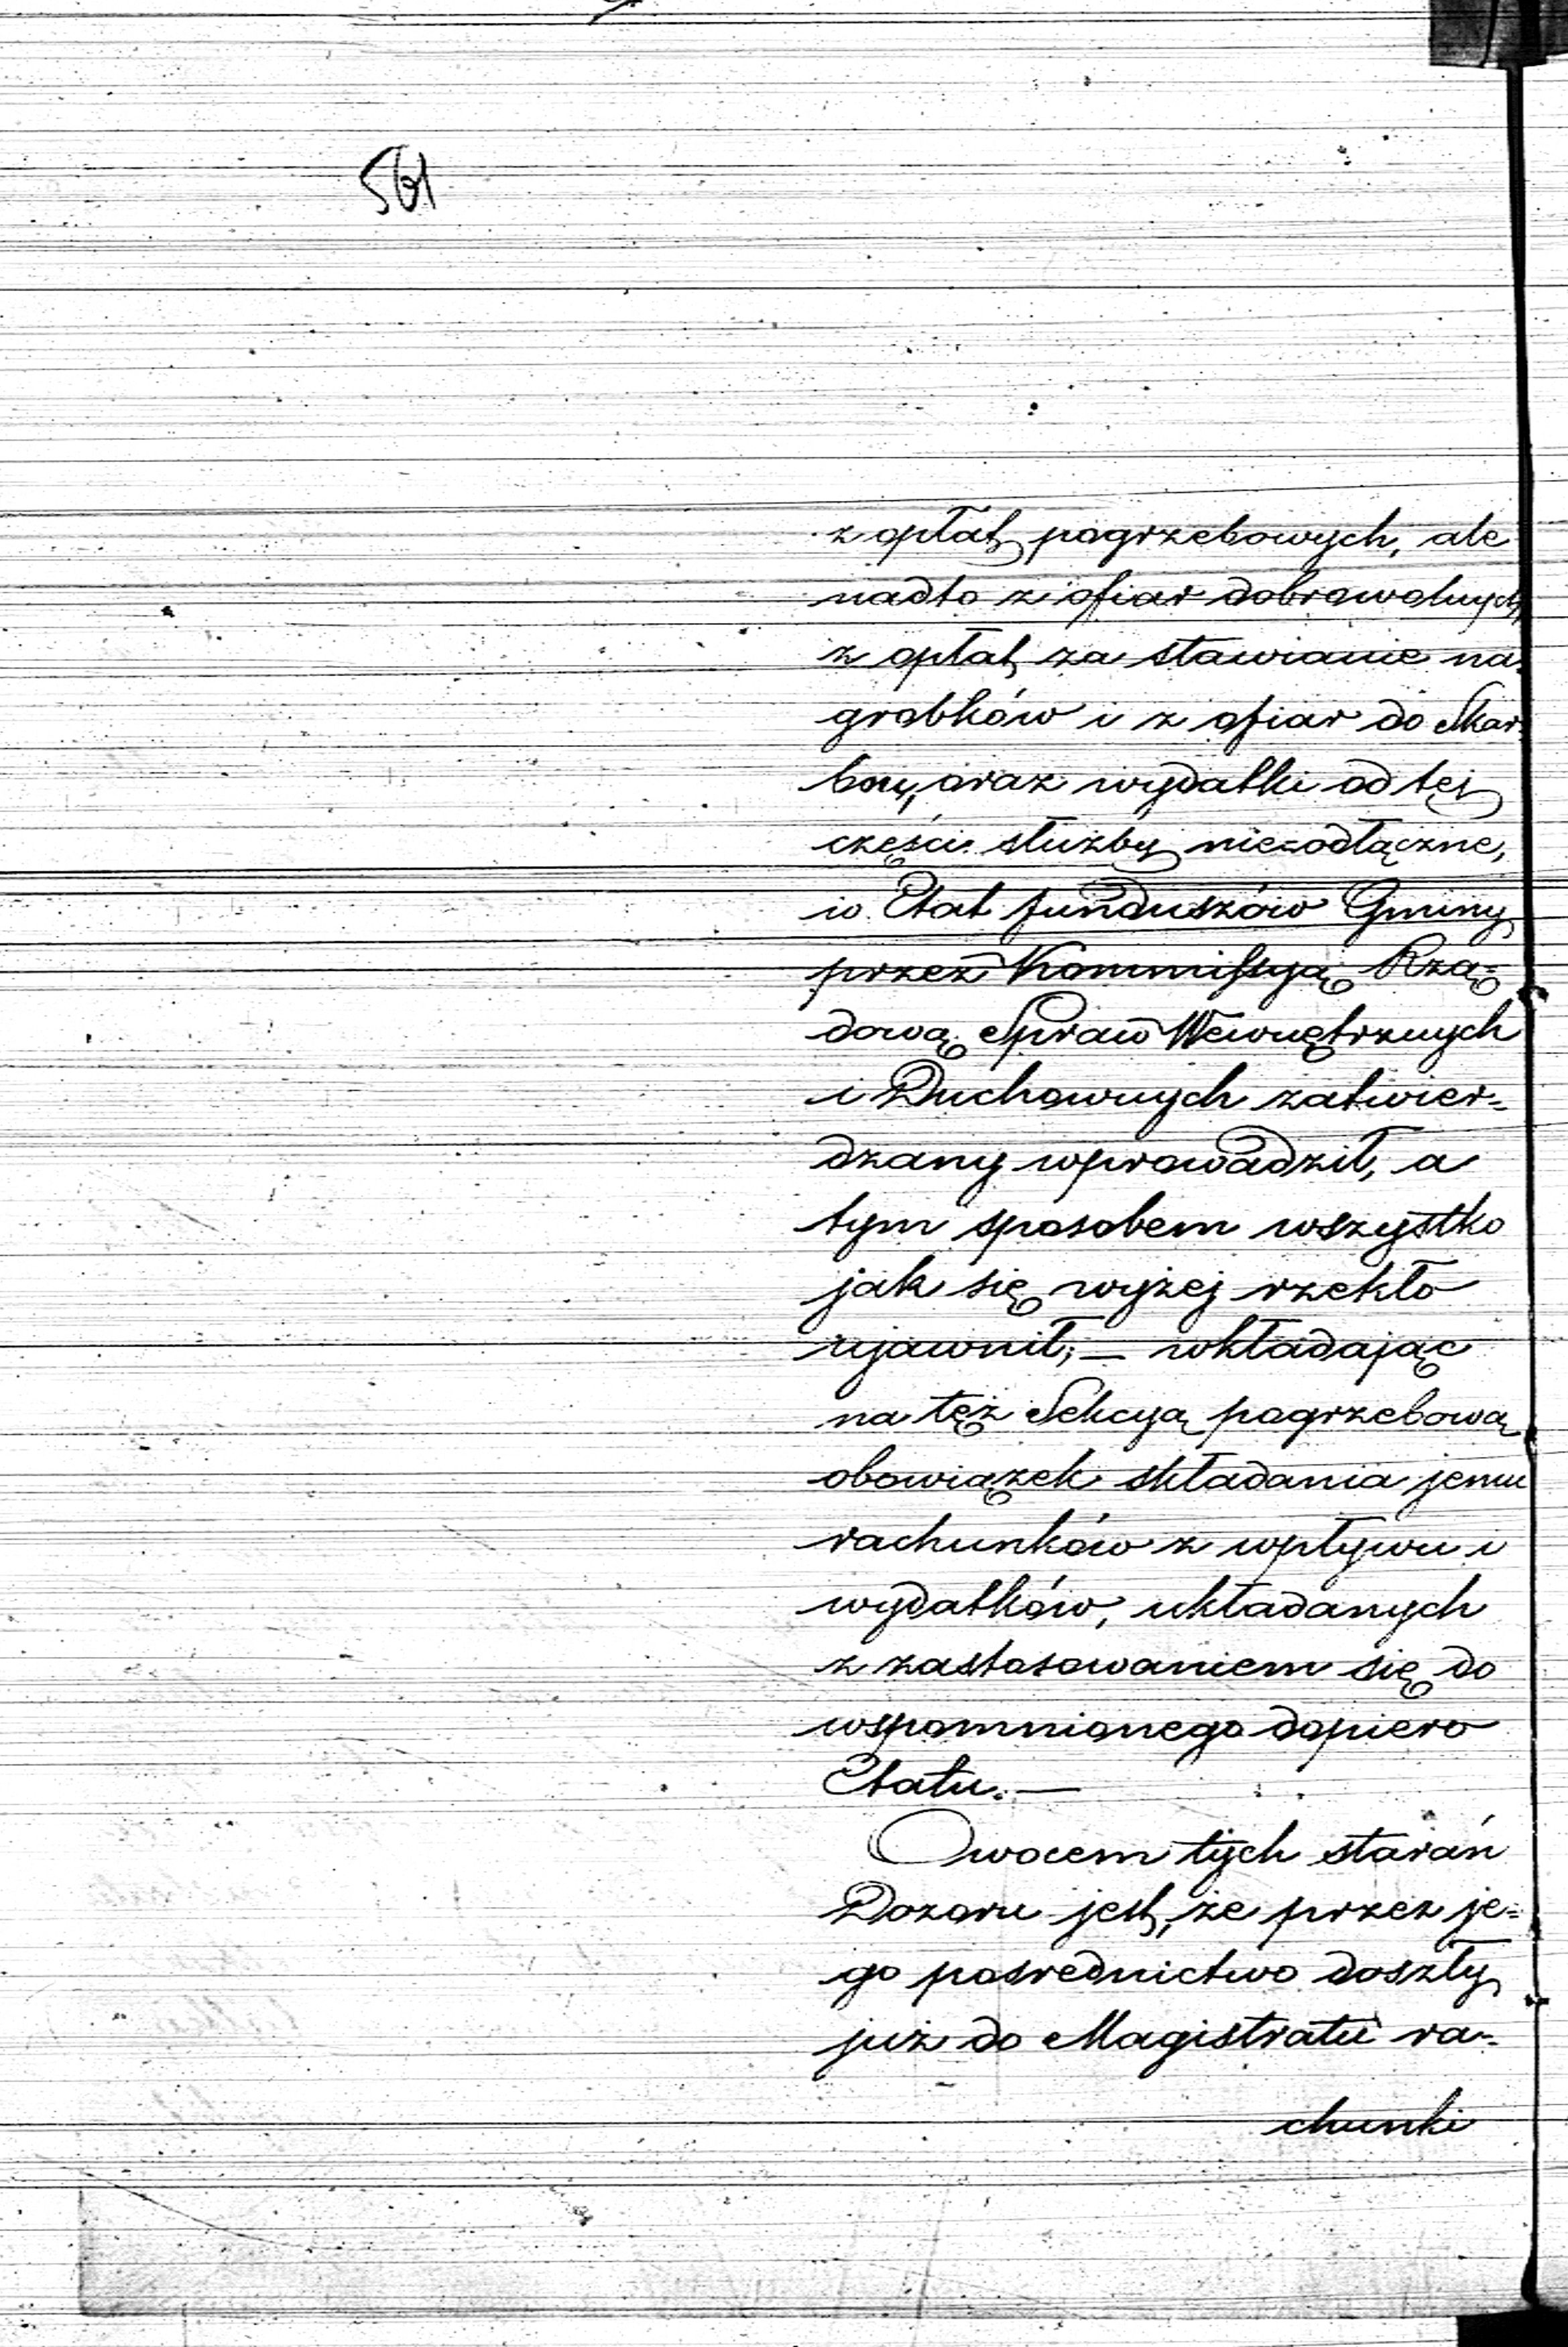 561
z opłat pogrzebowych, ale
nadto z ofiar dobrowolnych,
z opłat za stawianie na-
grobków i z ofiar do Skar-
bony, oraz wydatki od tej
części służby nie=odłączne,
w Etat funduszów Gminy
przez Kommissyą Rzą=
dową Spraw Wewnętrznych
i Duchownych zatwier=
dzany wprowadził, a
tym sposobem wszystko
jak się wyżej rzekło
ujawnił; — wkładając
na tęż Sekcyą pogrzebową
obowiązek składania jemu
rachunków z wpływu i
wydatków, układanych
z zastosowaniem się do
wspomnionego dopiero
Etatu. —
Owocem tych starań
Dozoru jest, że przez je=
go posrednictwo doszły
już do Magistratu ra=
chunki